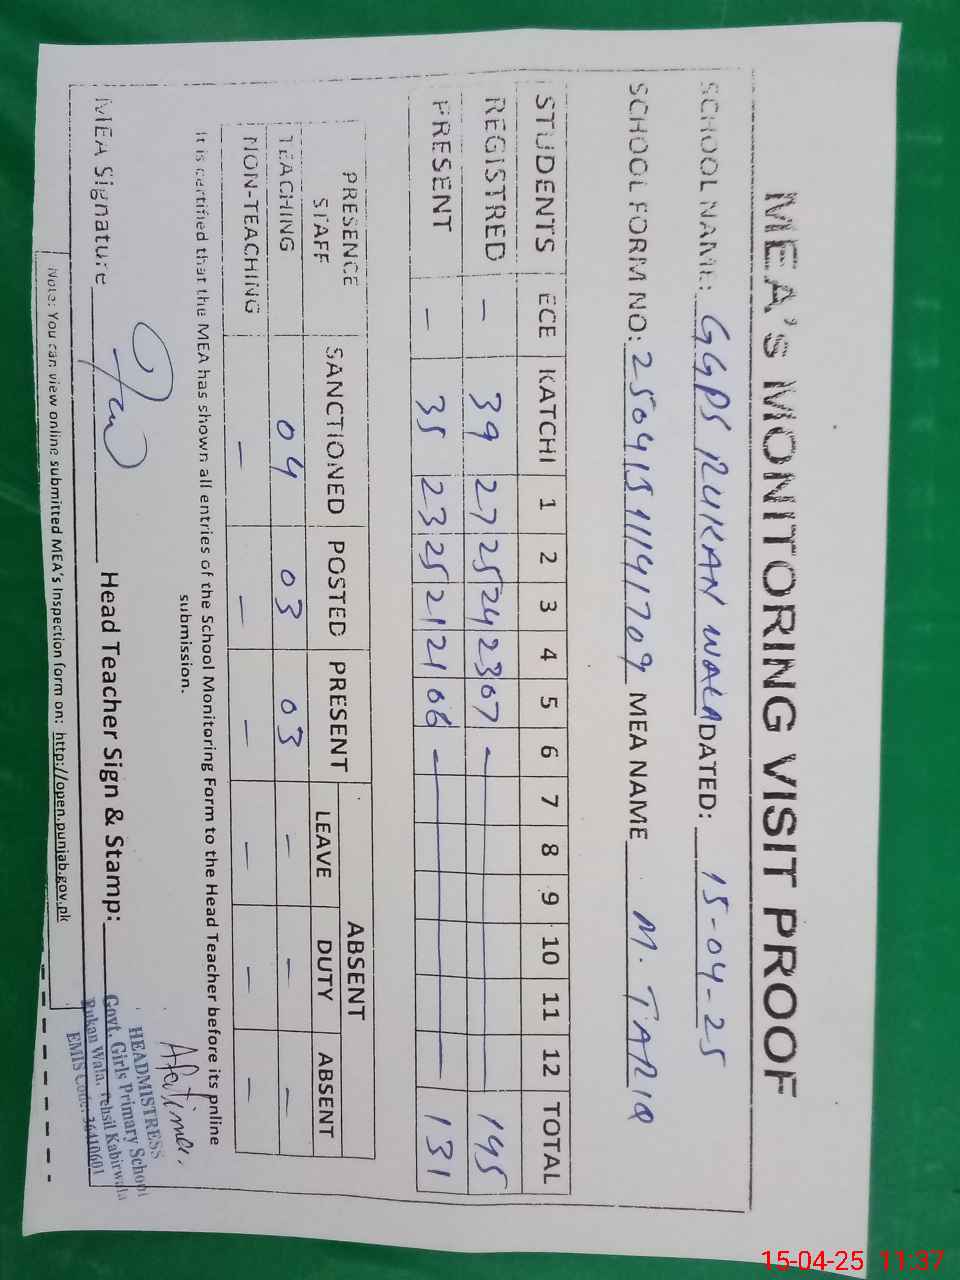 MEA'S MONITORING VISIT PROOF
SCHOOL NAME: GGPS RUKAN WALA DATED: 15-04-25
SCHOOL FORM NO: 25041511141709 MEA NAME M. TARIQ
STUDENTS ECE KATCHI 1 2 3 4 5 6 7 8 9 10 11 12 TOTAL
REGISTRED - 39 27 25 24 23 07 - 145
PRESENT - 35 23 25 21 21 06 - 131
PRESENCE STAFF SANCTIONED POSTED PRESENT ABSENT
LEAVE DUTY ABSENT
TEACHING 04 03 03 - - -
NON-TEACHING - - - - - -
It is certified that the MEA has shown all entries of the School Monitoring Form to the Head Teacher before its online
submission.
MEA Signature Head Teacher Sign & Stamp:
HEADMISTRESS
Govt. Girls Primary School
Rukan Wala, Tehsil Kabirwala
EMIS Code: 36410601
Note: You can view online submitted MEA's Inspection form on: http://open.punjab.gov.pk
15-04-25 11:37